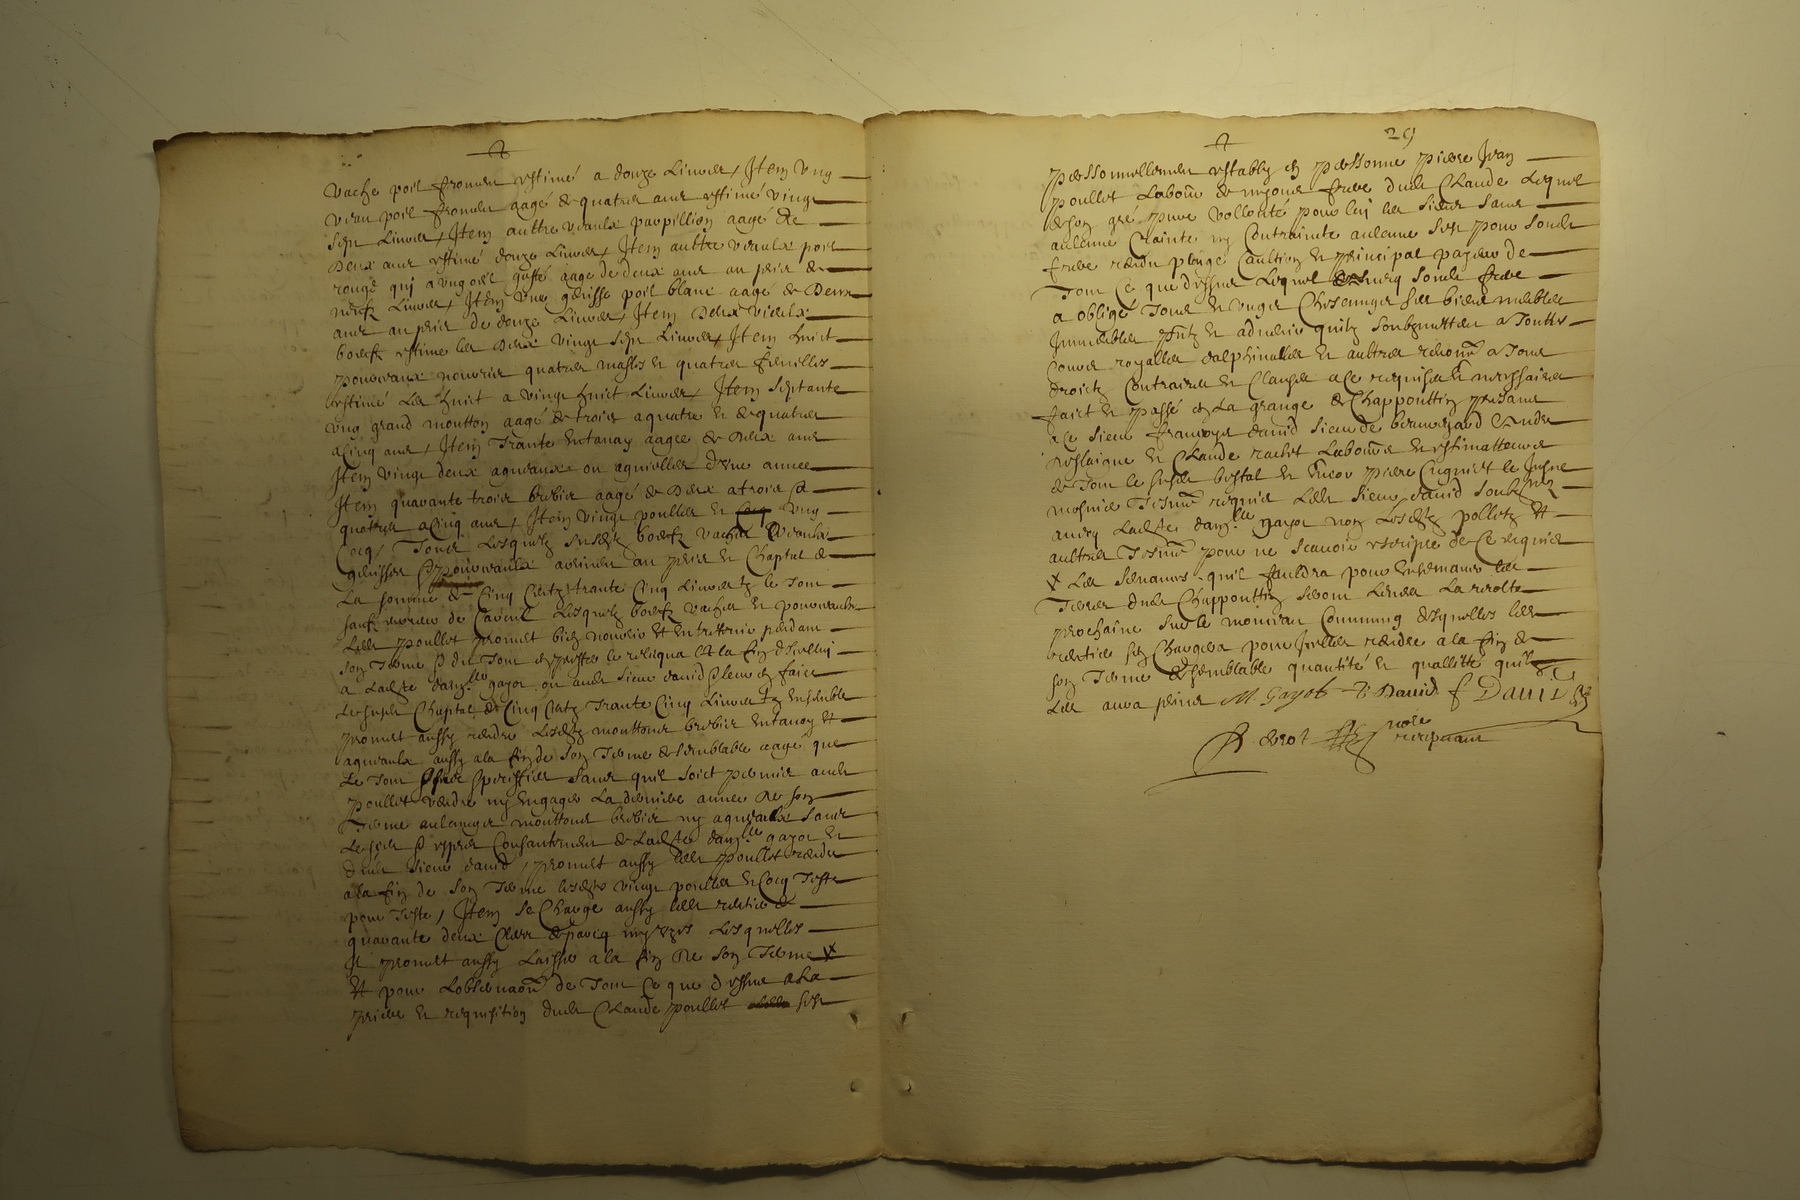 vache poil froment estimé a douze Livres, Item ung
veau poil froment aagé de quatre ans estimé vingt
sept Livres, Item aultre veaulx parpillion aagé de
Deux ans estimé douze Livres, Item aultre veaulx poil
rouge qui a ung oeil gasté aagé de deux ans au prix de
neufz Livres, Item une genisse poil blanc aagé de Deux
ans au prix de douze Livres, Item Deux vieulx
boeufz estimé les Deux vingt sept Livres, Item huict
pourceaux nourris quatres masles et quatres femelles
estimé Les huict a vingt huict Livres, Item septante
ung grand moutton aagé de trois a quatre et de quatres
a Cinq ans, Item Trante entanay aagee de Deux ans
Item vingt deux agneaux ou agnielles d'une annee
Item quarante trois brebis aagé de Deux a trois et
quattres a Cinq ans, Item vingt poulles et ung
Cocq Tous Lesquelz susdtz boeufz vaches veaulx
genisses et pourceaulx avenir au prix et Chaptal de
La somme de Cinq Centz trante Cinq Livres tz le tout
sauf erreur de Calcul Lesquelz boeufz vaches et pourceaulx
Ledt poullet promet bien nourrir et entrettenir pendant
son Terme et du Tout en prester le reliqua Et a la fin d'icelluy
a Ladte damlle gayot ou audt sieur david
Le susdt Chaptal de Cinq Centz Trante Cinq Livres tz ensemble
promet aussy rendre Lesdtz mouttons brebis entanay et
agneaulx aussy a la fin de son Terme de semblable aage que
Le Tout est cy speciffier sans quil soict permis audt
poullet vendre ny engager La derniere annee de son
Terme aulcungs mouttons brebis ny agneaulx sans
Le sceu et expres Consantement de Ladte damlle gayot et
dudt sieur david, promet aussy Ledt poullet rendre
a la fin de son Terme lesdtes vingt poulles et Cocq Teste
pour Teste, Item se Charge aussy Ledt rentier de
quarante deux Clees de parcq Lesquelles
Il promet aussy Laisser a la fin de son Terme X
Et pour Lobservaon de Tout Ce que dessus a La
priere et requisition dudt Claude poullet sest
29
personnellement establý en personne pierre Jean
poullet Labour de mesme frere dudt Claude Lequel
de son gré pure vollonté pour luy les siens sans
aulcune Crainte ny Contrainte aulcune sest pour sondt
frere rendu pleige Caultion et principal payeur de
Tout Ce que dessus Lequel avecq sondt frere
a obligé Tous et ungs Chescungs ses biens meubles
Immeubles pntz et advenir quilz soubzmettent a Touttes
Cours royalles dalphinalles et aultres
droictz Contraires et Clauses a ce requises et necessaires
faict et passé en La grange de Chappouttin presans
a Ce sieur françoys david sieur de beauregard André
et Claude rachet Laboure et estimatteurs
de Tout le susdt bestal et encor pierre Cugniet le Jeusne
mosnier Tesms requis Ledt sieur david soubzne
avecq Ladte damlle gayot non Lesdtz polletz Et
aultres Tesms pour ne scavoir escripre de Ce requis
X Les semances quil fauldra pour ensemancer les
Terres dudt Chappouttin seront Levees La recolte
prochaine sur le monceau Commung desquelles Ledt
rentier sen Chargera pour Icelles rendre a la fin de
son Terme de semblable quantité et quallitté quil
Les aura prins M. Gayot David f David
nore
recepvant